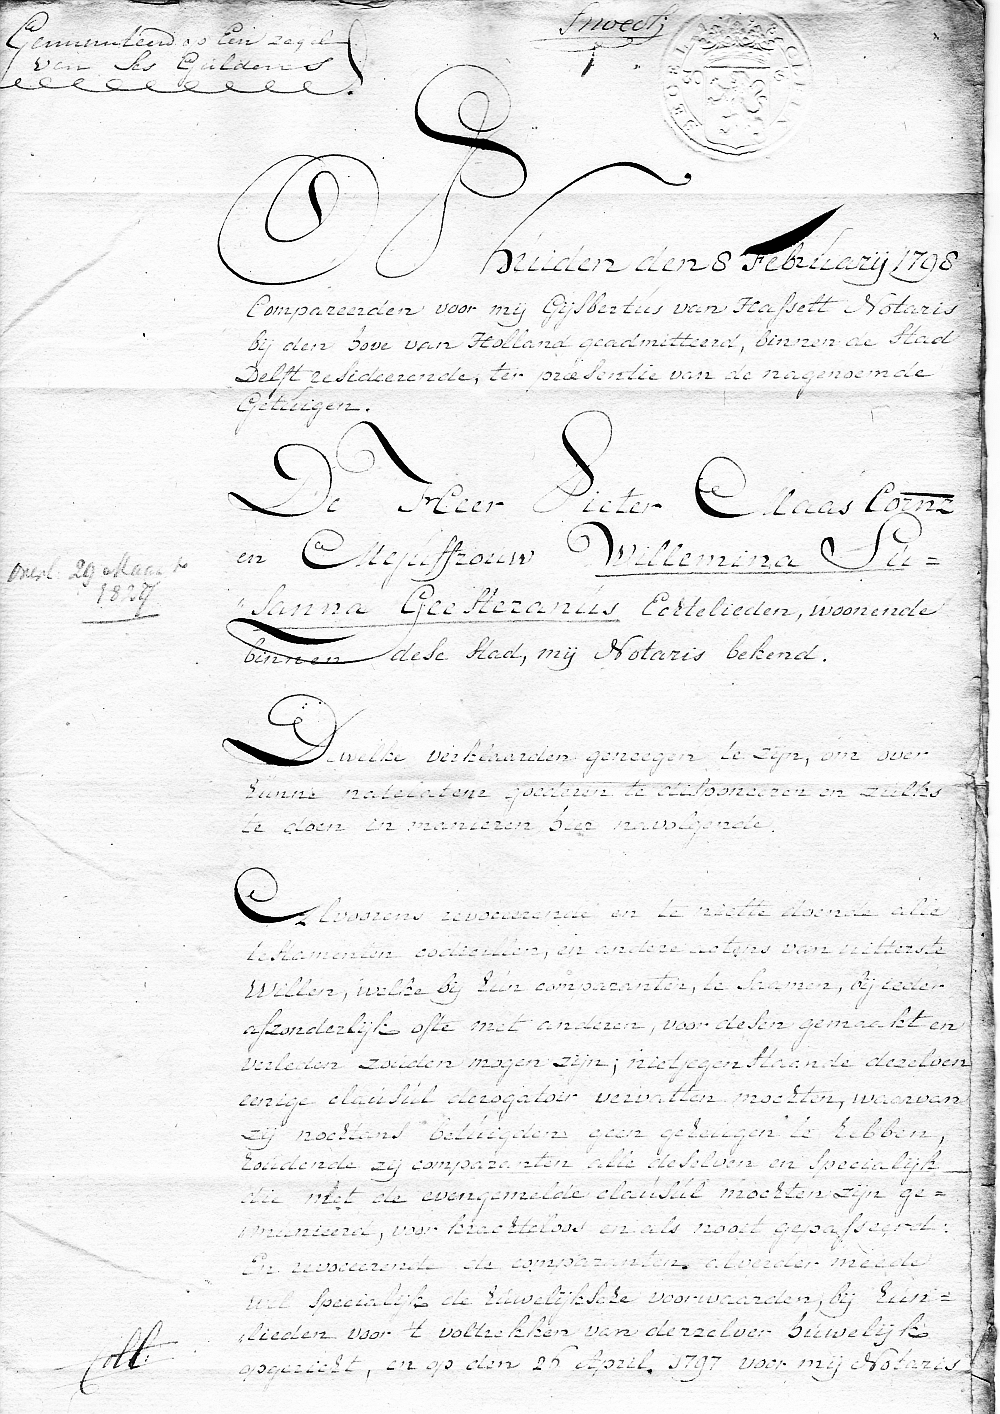 Gemunteerd op Een zegel
van Ses Guldenes
ZEGEL CLEIN
Op huiden den 8 Februarij 1798
Compareerden voor mij Gijsbertus van Hasselt Notaris
bij den hove van Holland geadmitteerd, binnen de Stad
Delft resideerende, ter præsentie van de nagenoemde
Getuigen.
De Heer Pieter Claas Cornz
en Mejuffrouw Willemina Su=
sanna Geesteranus Echtelieden, woonende
binnen dese Stad, mij Notaris bekend.
overl. 29 Maart
Dewelke verklaarden geneegen te zijn, om over
hunne natelatene goederen te disponeeren en zulks
te doen in manieren hier navolgende.
Alvoorens revoceerende en te niette doende alle
testamenten codicillen, en andere actens van uitterste
Willen, welke bij hun comparanten, te saamen, bij ieder
afzonderlijk ofte met anderen, voor desen gemaakt en
verleden zouden mogen zijn; nietjegenstaande dezelven
eenige clausul derogatoir vervatten mochten, waarvan
zij nochtans betuigden geen geheugen te hebben,
houdende zij comparanten alle deselven en specialijk
die met de evengemelde clausul mochten zijn ge=
munieerd, voor krachteloos en als nooit gepasseerd.
En revoceerende de comparanten alverder meede
wel specialijk de huwelijksche voorwaarden, bij hun=
lieden voor 't voltrekken van derzelver huwelijk
opgericht, en op den 26 April 1797 voor mij Notaris